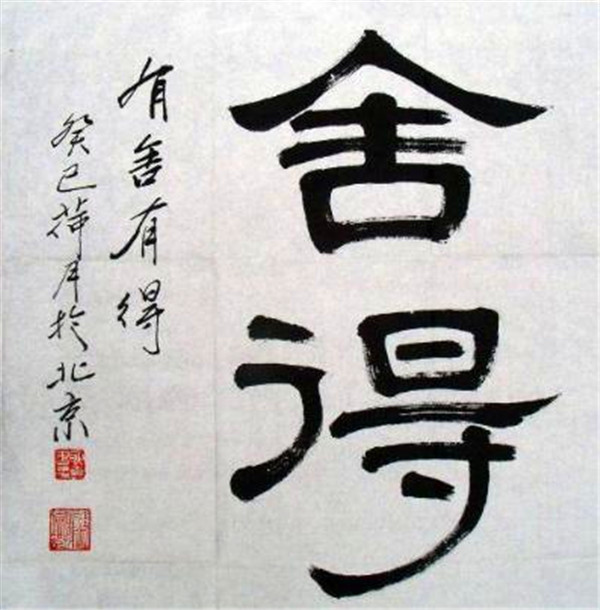 舍得
有舍有得
癸巳荷月於北京